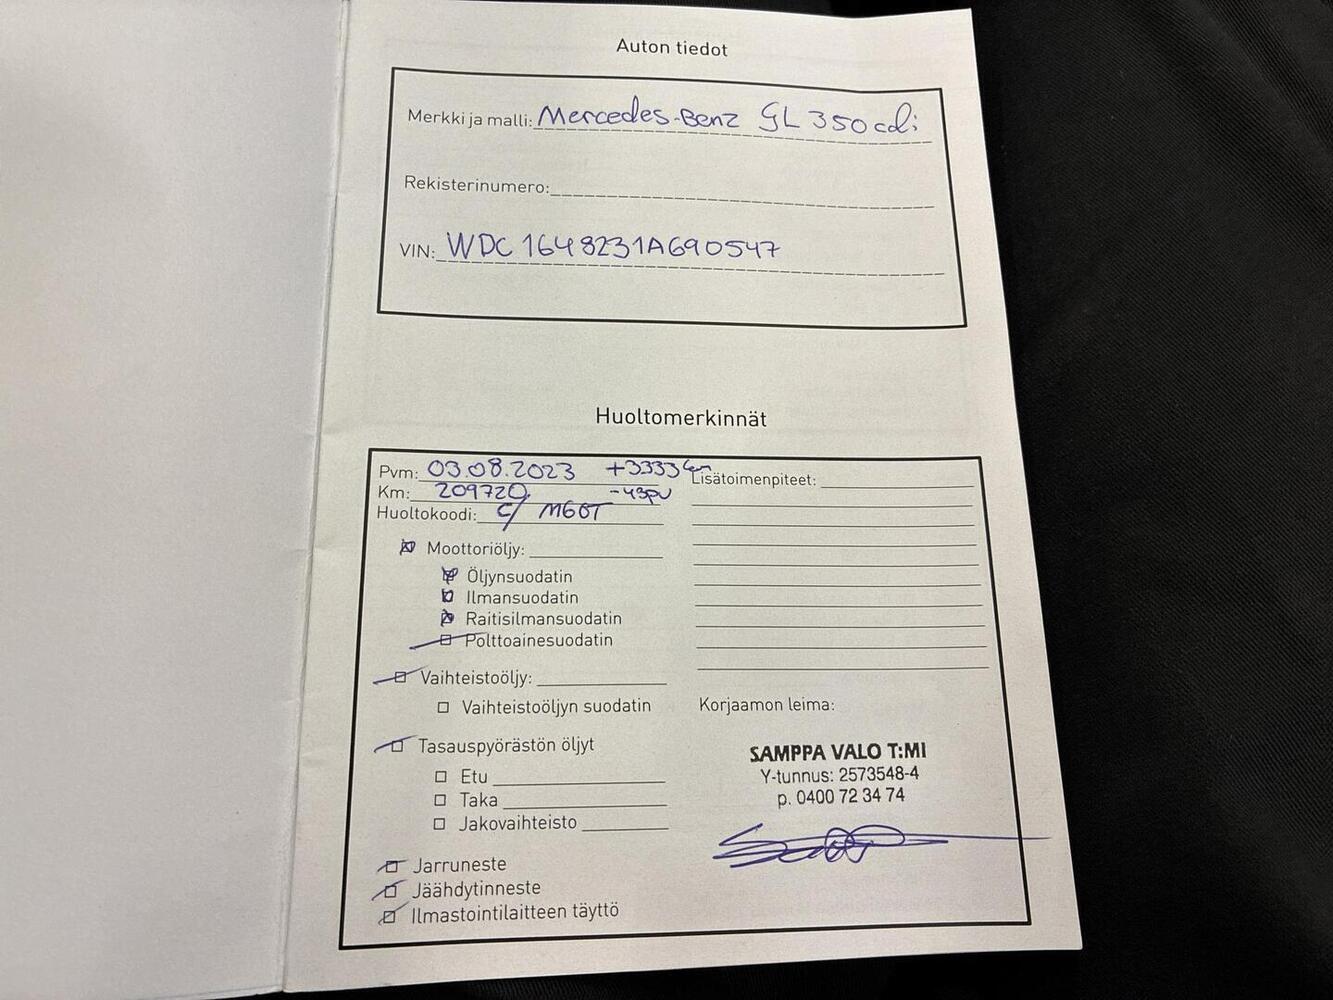 Auton tiedot
Merkki ja malli: Mercedes-Benz GL 350 cdi
Rekisterinumero:
VIN: WDC1648231A690547
Huoltomerkinnät
Pvm: 03.08.2023 +3333 km
Km: 209720 -43pv
Huoltokoodi: C/ M60T
Moottoriöljy:
Öljynsuodatin
Ilmansuodatin
Raitisilmansuodatin
Polttoainesuodatin
Vaihteistoöljy:
Vaihteistoöljyn suodatin
Tasauspyörästön öljyt
Etu
Taka
Jakovaihteisto
Jarruneste
Jäähdytinneste
Ilmastointilaitteen täyttö
Lisätoimenpiteet:
Korjaamon leima:
SAMPPA VALO T:MI
Y-tunnus: 2573548-4
p. 0400 72 34 74